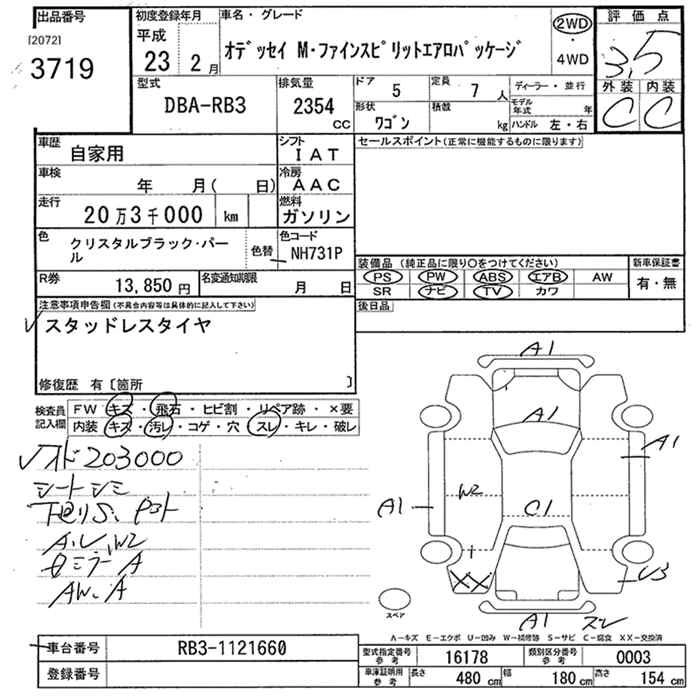 出品番号
[2072]
3719
初度登録年月
平成
23 2月
車名・グレード
オデッセイ M・ファインスピリットエアロパッケージ
2WD
・
4WD
評価点
3.5
外装 内装
C C
型式
DBA-RB3
排気量
2354
CC
ドア 5
定員 7 人
形状 ワゴン
積載 kg
ディーラー・並行
モデル年式 年
ハンドル 左・右
車歴
自家用
シフト
I A T
車検
年 月( 日)
冷房
A A C
走行
20万3千000 km
燃料
ガソリン
色
クリスタルブラック・パール
色替
色コード
NH731P
R券
13,850円
名変通知期限
月 日
セールスポイント(正常に機能するものに限ります)
装備品(純正品に限り○をつけてください)
PS PW ABS エアB AW
SR ナビ TV カワ
新車保証書
有・無
後日品
注意事項申告欄(不具合内容等は具体的に記入して下さい)
スタッドレスタイヤ
修復歴 有〔箇所 〕
検査員記入欄
FW キズ・飛石・ヒビ割・リペア跡・×要
内装 キズ・汚レ・コゲ・穴・スレ・キレ・破レ
203000
シートシミ
A.W2
ミラーA
AW.A
A1
A1
A1
W2
A1
C1
XX
U3
A1 スレ
スペア
A-キズ E-エクボ U-凹み W-補修跡 S-サビ C-腐食 XX-交換済
車台番号
RB3-1121660
登録番号
型式指定番号 参考
16178
類別区分番号 参考
0003
車庫証明用 参考
長さ 480 cm
幅 180 cm
高さ 154 cm